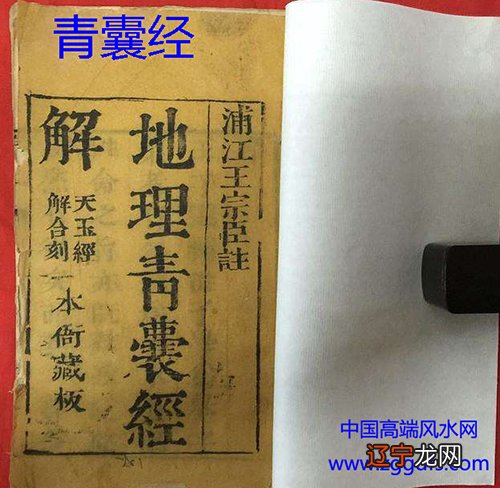 青囊经
浦江王宗臣註
地理青囊經
解
天玉經
解合刻
本衙藏板
中国高端风水网
辽宁龙网